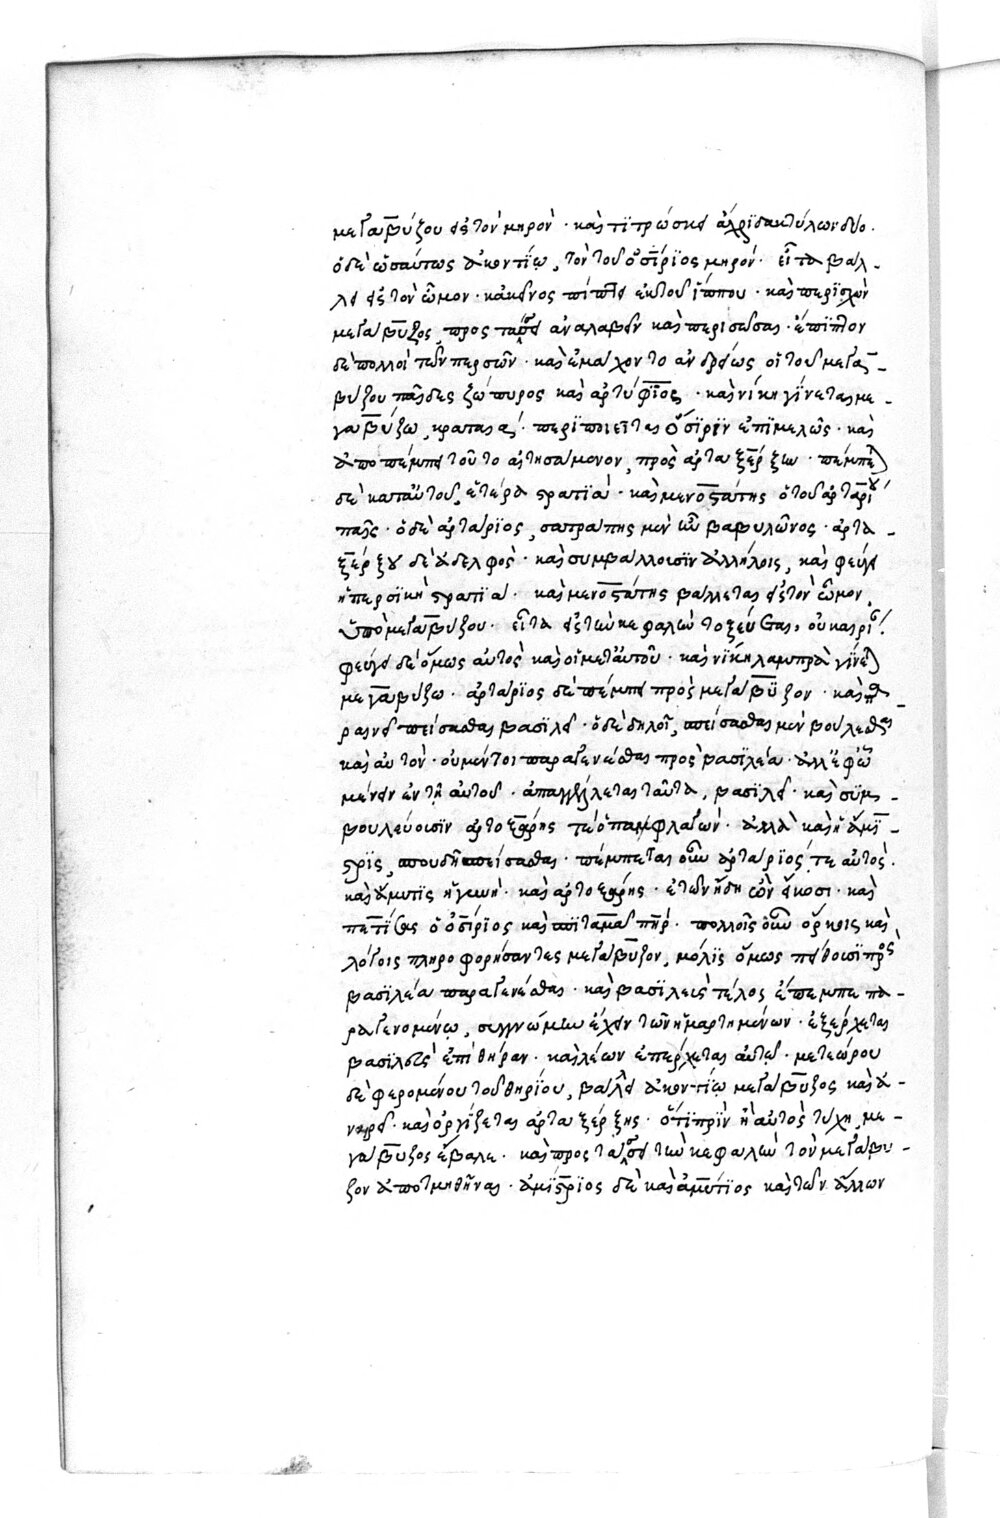 μεγαβύζου εἰς τὸν μηρὸν· καὶ τιτρώσκει ἄχρι δακτύλων δύο·
ὁ δὲ ὡσαύτως ἀκοντίῳ, τὸν τοῦ ὀσίριος μηρόν· εἶτα βάλ-
λει εἰς τὸν ὦμον· κἀκεῖνος πίπτει ἐκ τοῦ ἵππου· καὶ περισχὼν
μεγάβυζος, προστάσσει ἀναλαβεῖν καὶ περισῶσαι· ἔπιπτον
δὲ πολλοὶ τῶν περσῶν· καὶ ἐμάχοντο ἀνδρείως οἱ τοῦ μεγα-
βύζου παῖδες ζώπυρος καὶ ἀρτύφιος· καὶ νίκη γίνεται με-
γαβύζω, κραταιά· περιποιεῖται ὄσιριν ἐπιμελῶς· καὶ
ἀποπέμπει τοῦτο αἰτησαμένον, πρὸς ἀρταξέρξω· πέμπε)
δὲ κατ' αὐτοῦ, ἑτέρα στρατιὰ· καὶ μενοστάτης ὁ τοῦ ἀρταρίου
παῖς· ὁ δὲ ἀρτάριος, σατράπης μὲν ἦν βαβυλῶνος· ἀρτα-
ξέρξου δὲ ἀδελφὸς· καὶ συμβάλλουσιν ἀλλήλοις, καὶ φεύγει
ἡ περσικὴ στρατιὰ· καὶ μενοστάτης βάλλεται εἰς τὸν ὦμον,
ὑπὸ μεγαβύζου· εἶτα εἰς τὴν κεφαλὴν τοξεύεται, οὐ καιρί(·)
φεύγει δὲ ὅμως αὐτὸς καὶ οἱ μετ' αὐτοῦ· καὶ νίκη λαμπρὰ γίνε)
μεγαβύζω· ἀρτάριος δὲ πέμπει πρὸς μεγάβυζον· καὶ πα-
ραινεῖ σπείσασθαι βασιλεῖ· ὁ δὲ δηλοῖ, σπείσασθαι μὲν βούλεσθαι
καὶ αὐτὸν· οὐ μέντοι παραγενέσθαι πρὸς βασιλέα· ἀλλ' ἐφ' ᾧ
μένειν ἐν τῇ αὐτοῦ· ἀπαγγέλλεται ταῦτα, βασιλεῖ· καὶ συμ-
βουλεύουσιν ἀρτοξάρης τὲ ὁ παμφλαγὼν· ἀλλὰ καὶ ἡ ἄμι-
στρις, σπουδῆ σπείσασθαι· πέμπεται οὖν ἀρτάριός τε αὐτὸς·
καὶ ἄμυτις ἡ γυνὴ· καὶ ἀρτοξάρης· ἐτῶν ἤδη ὢν εἴκοσι· καὶ
πετίσας ὁ ὀσίριος καὶ σπιτάμα πατήρ· πολλοῖς οὖν ὅρκοις καὶ
λόγοις πληροφορήσαντες μεγάβυζον, μόλις ὅμως πείθουσι πρὸς
βασιλέα παραγενέσθαι· καὶ βασιλεὺς τέλος ἔπεμπε πα-
ραγενομένῳ, συγγνώμην ἔχειν τῶν ἡμαρτημένων· ἐξέρχεται
βασιλεὺς ἐπὶ θήραν· καὶ λέων ἐπέρχεται αὐτῷ· μετεώρου
δὲ φερομένου τοῦ θηρίου, βάλλει ἀκοντίῳ μεγάβυζος καὶ ἀ-
ναιρεῖ· καὶ ὀργίζεται ἀρταξέρξης· ὅτι πρὶν ἢ αὐτὸς τύχη, με-
γάβυζος ἔβαλε· καὶ προστάσσει τὴν κεφαλὴν τὸν μεγάβυ-
ζον ἀποτμηθῆναι· ἀμίστριος δὲ καὶ ἀμύτιος καὶ τῶν ἄλλων